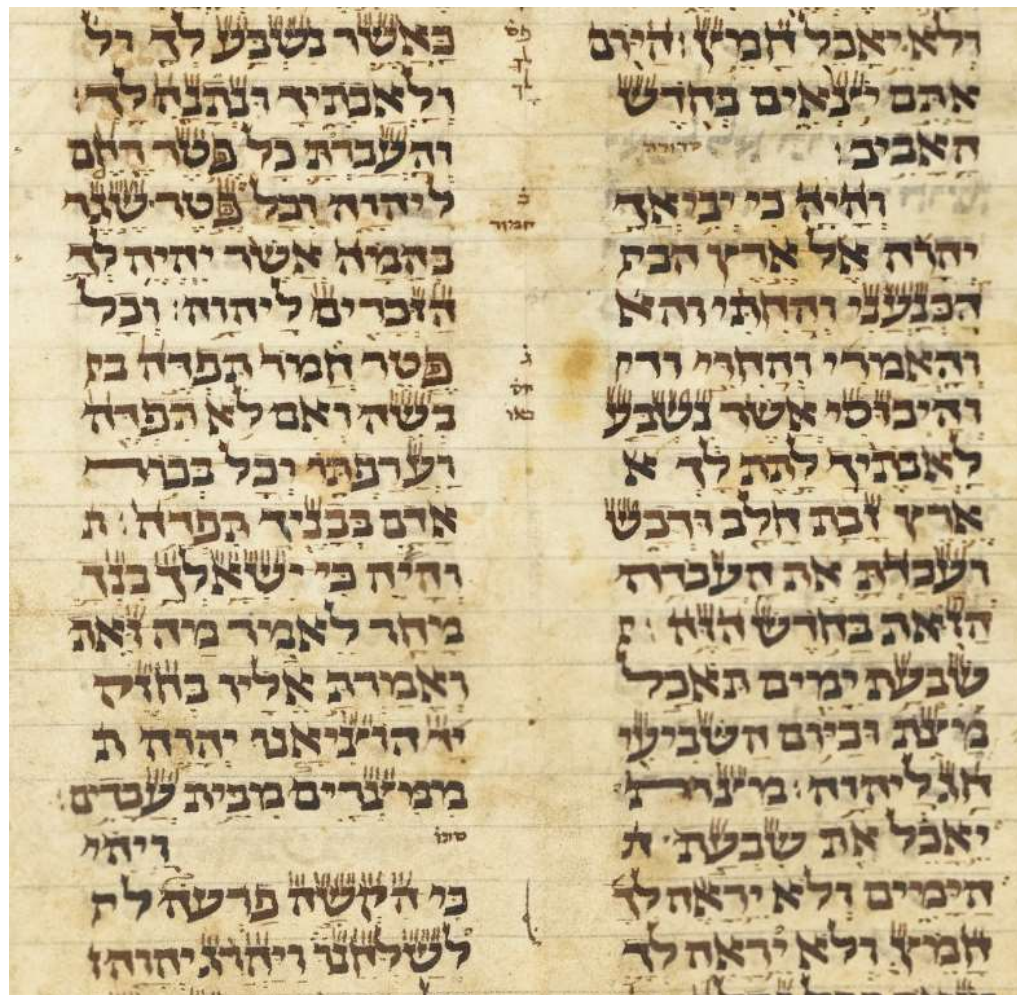 ולא יאכל חמץ׃ היום
אתם יצאים בחדש
האביב׃
והיה כי יביאך
יהוה אל ארץ הכ
הכנעני והחתי והא
והאמרי והחוי
והיבוסי אשר נשבע
לאבתיך לתת לך א
ארץ זבת חלב ודבש
ועבדת את העבדה
הזאת בחדש הזה׃
שבעת ימים תאכל
מצת וביום השביעי
חג ליהוה׃ מצות
יאכל את שבעת
הימים ולא יראה לך
חמץ ולא יראה לך
כאשר נשבע לך ול
ולאבתיך ונתנה לך׃
והעברת כל פטר רחם
ליהוה וכל פטר שגר
בהמה אשר יהיה לך
הזכרים ליהוה׃ וכל
פטר חמר תפדה
בשה ואם לא תפדה
וערפתו וכל בכור
אדם בבניך תפדה׃ ת
והיה כי ישאלך בנך
מחר לאמר מה זאת
ואמרת אליו בחזק
יד הוציאנו יהוה ת
ממצרים מבית עבדים׃
ויהי
כי הקשה פרעה
לשלחנו ויהרג יהוה
חמור